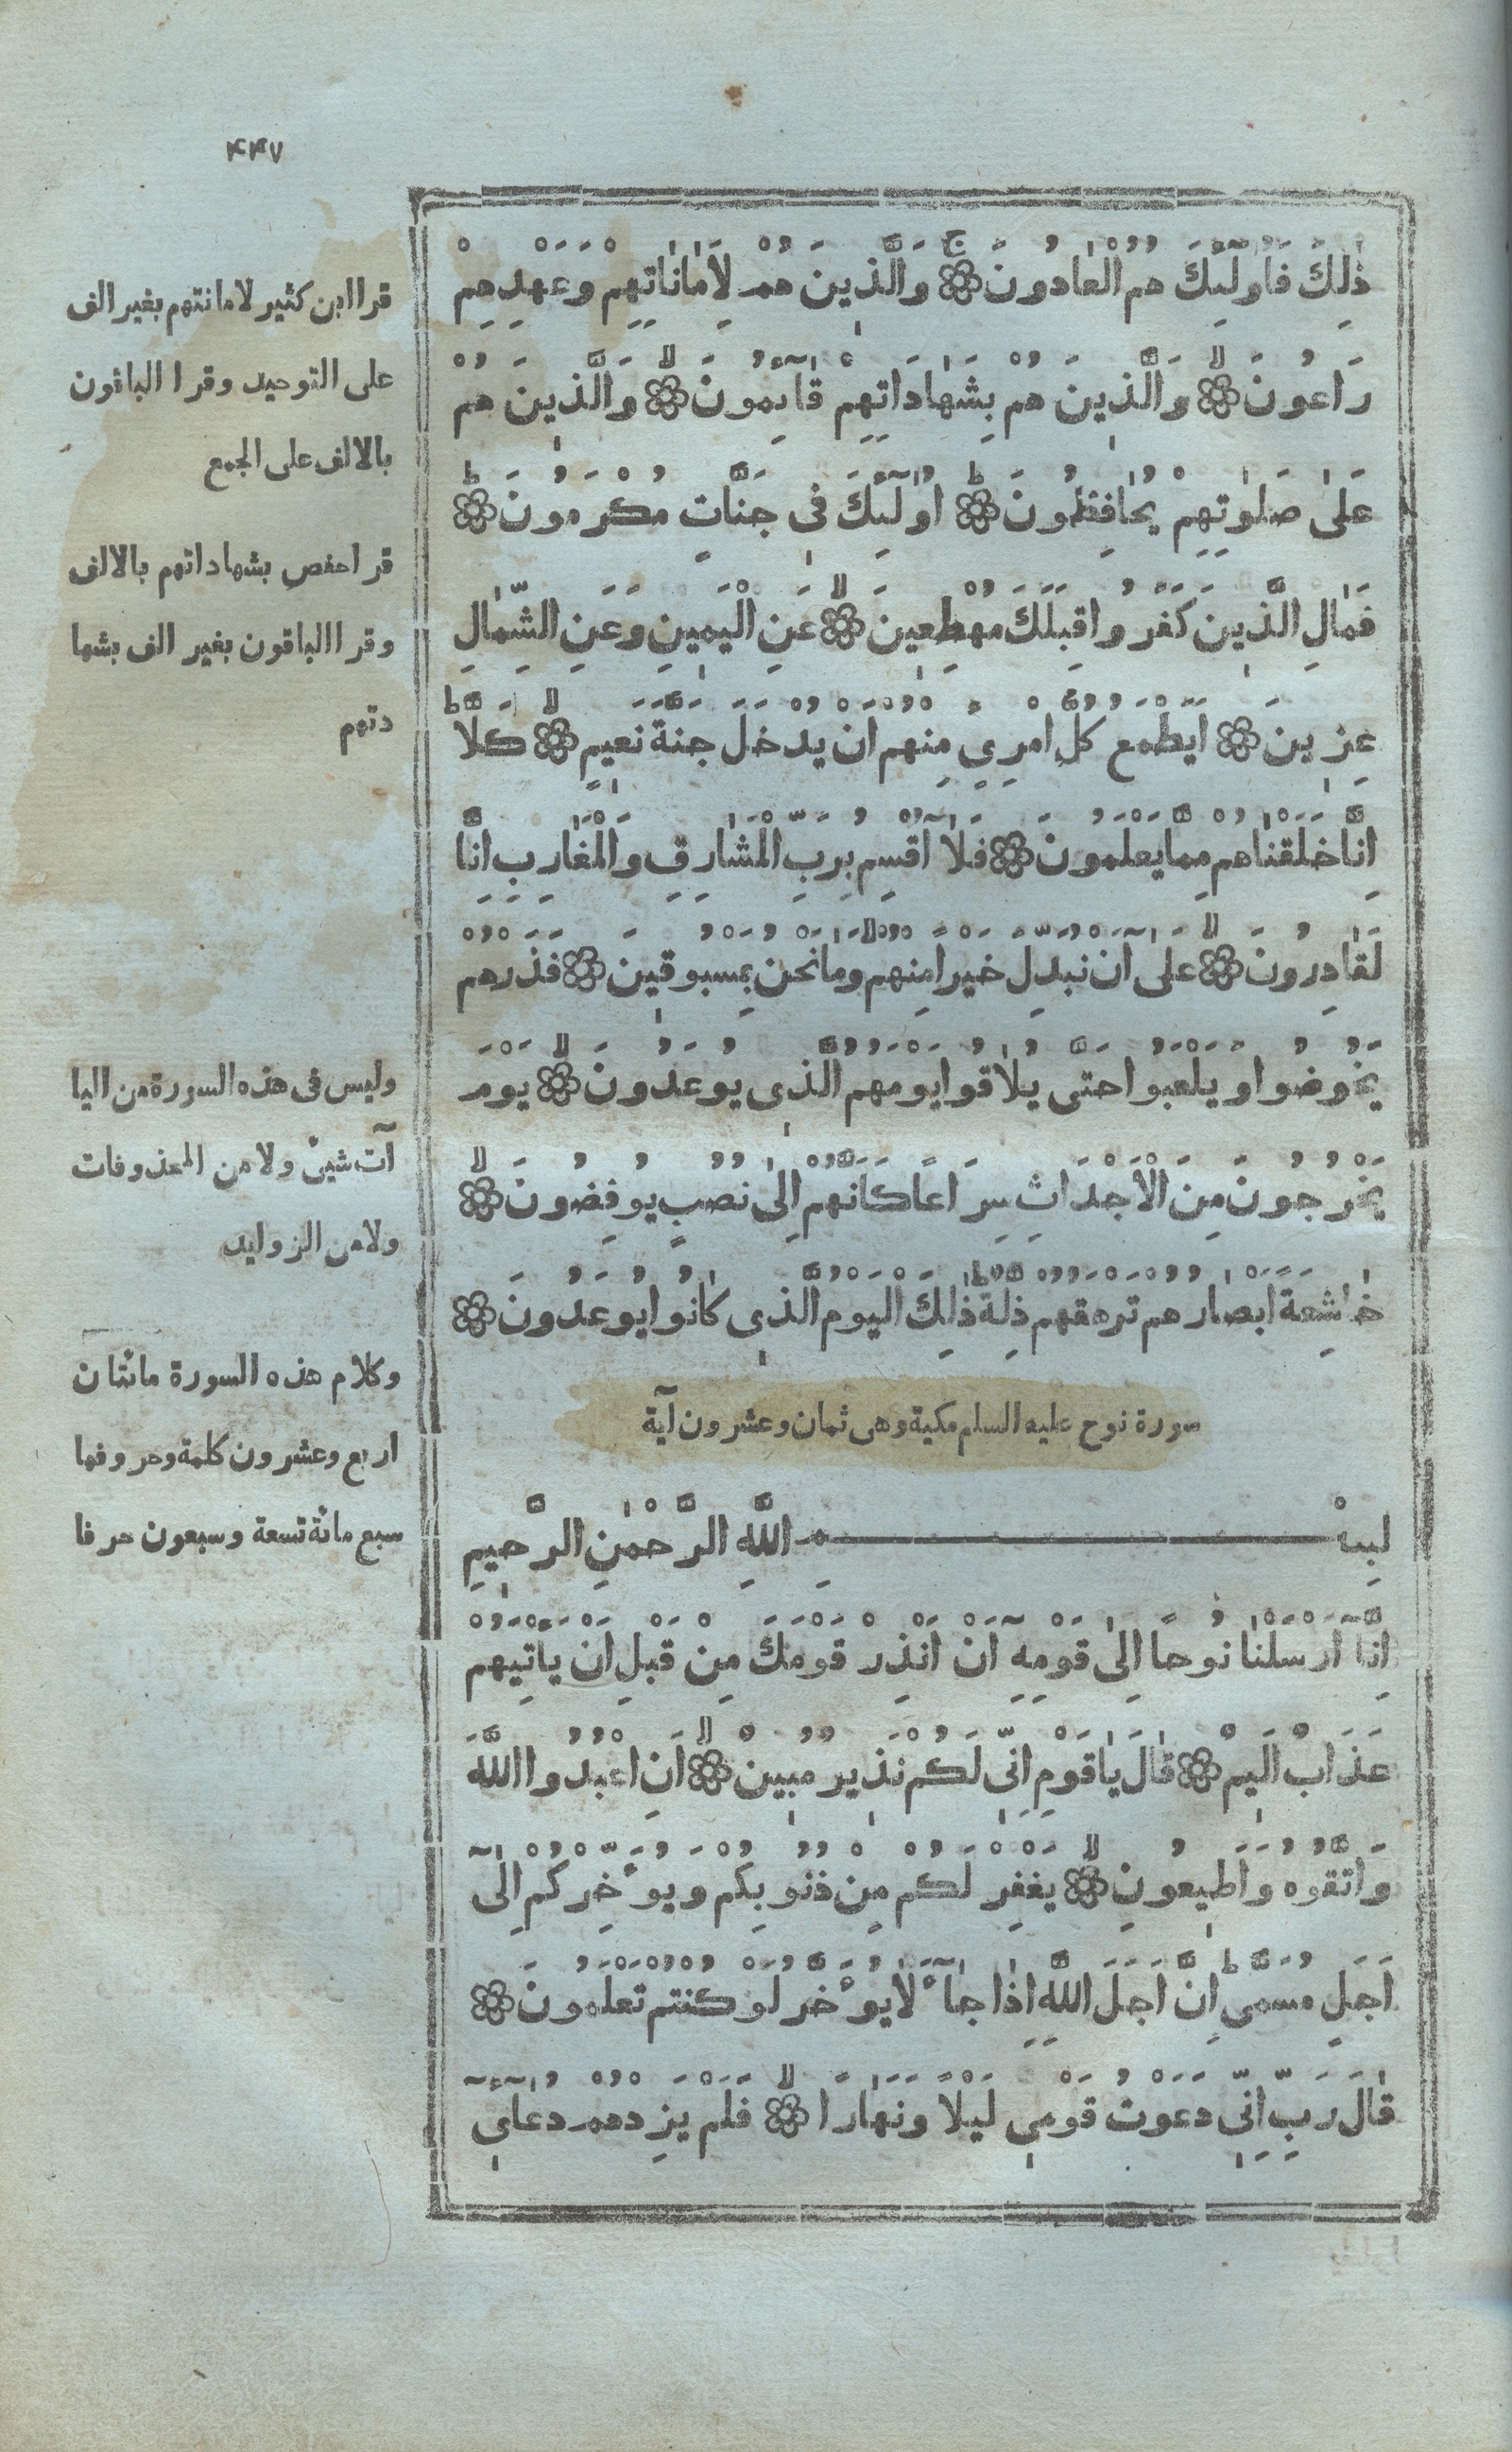 ۴۴۷
ذٰلِكَ فَاُولٰٓئِكَ هُمُ الْعَادُونَ ۞ وَالَّذِينَ هُمْ لِاَمَانَاتِهِمْ وَعَهْدِهِمْ
رَاعُونَ ۞ وَالَّذِينَ هُمْ بِشَهَادَاتِهِمْ قَآئِمُونَ ۞ وَالَّذِينَ هُمْ
عَلٰى صَلٰوتِهِمْ يُحَافِظُونَ ۞ اُولٰٓئِكَ فِى جَنَّاتٍ مُكْرَمُونَ ۞
فَمَالِ الَّذِينَ كَفَرُوا قِبَلَكَ مُهْطِعِينَ ۞ عَنِ الْيَمِينِ وَعَنِ الشِّمَالِ
عِزِينَ ۞ اَيَطْمَعُ كُلُّ امْرِئٍ مِنْهُمْ اَنْ يُدْخَلَ جَنَّةَ نَعِيمٍ ۞ كَلَّا
اِنَّا خَلَقْنَاهُمْ مِمَّا يَعْلَمُونَ ۞ فَلَآ اُقْسِمُ بِرَبِّ الْمَشَارِقِ وَالْمَغَارِبِ اِنَّا
لَقَادِرُونَ ۞ عَلٰٓى اَنْ نُبَدِّلَ خَيْرًا مِنْهُمْ وَمَا نَحْنُ بِمَسْبُوقِينَ ۞ فَذَرْهُمْ
يَخُوضُوا وَيَلْعَبُوا حَتّٰى يُلَاقُوا يَوْمَهُمُ الَّذِى يُوعَدُونَ ۞ يَوْمَ
يَخْرُجُونَ مِنَ الْاَجْدَاثِ سِرَاعًا كَاَنَّهُمْ اِلٰى نُصُبٍ يُوفِضُونَ ۞
خَاشِعَةً اَبْصَارُهُمْ تَرْهَقُهُمْ ذِلَّةٌ ذٰلِكَ الْيَوْمُ الَّذِى كَانُوا يُوعَدُونَ ۞
سورة نوح عليه السلم مكية وهى ثمان وعشرون آية
بِسْمِ اللَّهِ الرَّحْمٰنِ الرَّحِيمِ
اِنَّآ اَرْسَلْنَا نُوحًا اِلٰى قَوْمِهِٓ اَنْ اَنْذِرْ قَوْمَكَ مِنْ قَبْلِ اَنْ يَاْتِيَهُمْ
عَذَابٌ اَلِيمٌ ۞ قَالَ يَاقَوْمِ اِنِّى لَكُمْ نَذِيرٌ مُبِينٌ ۞ اَنِ اعْبُدُوا اللَّهَ
وَاتَّقُوهُ وَاَطِيعُونِ ۞ يَغْفِرْ لَكُمْ مِنْ ذُنُوبِكُمْ وَيُؤَخِّرْكُمْ اِلٰٓى
اَجَلٍ مُسَمًّى اِنَّ اَجَلَ اللَّهِ اِذَا جَآءَ لَا يُؤَخَّرُ لَوْ كُنْتُمْ تَعْلَمُونَ ۞
قَالَ رَبِّ اِنِّى دَعَوْتُ قَوْمِى لَيْلًا وَنَهَارًا ۞ فَلَمْ يَزِدْهُمْ دُعَآئِٓى
قرا ابن كثير لامانتهم بغير الف
على التوحيد وقرا الباقون
بالالف على الجمع
قرا حفص بشهاداتهم بالالف
وقرا الباقون بغير الف بشها
دتهم
وليس فى هذه السورة من اليا
آت شيئ ولا من المحذوفات
ولا من الزوايد
وكلام هذه السورة مائتان
اربع وعشرون كلمة وحروفها
سبع مائة تسعة وسبعون حرفا